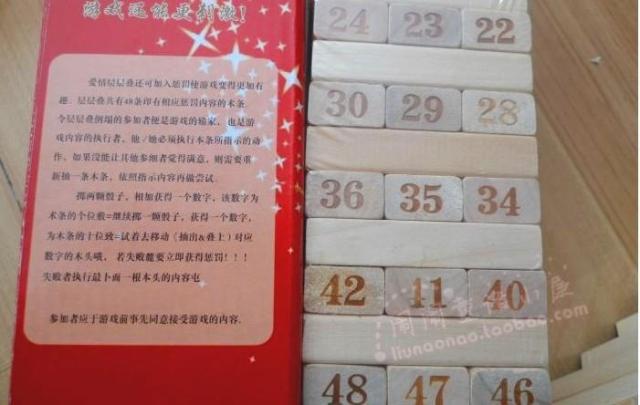 游戏还能更刺激!
爱情层层叠还可加入惩罚使游戏变得更加有
趣. 层层叠共有48条印有相应惩罚内容的木条.
令层层叠倒塌的参加者便是游戏的输家, 也是游
戏内容的执行者, 他/她必须执行本条所指示的动
作, 如果没能让其他参细者觉得满意, 则需要重
新抽一条木条, 依照指示内容再做尝试.
掷两颗骰子, 相加获得一个数字, 该数字为
木条的个位数=继续掷一颗骰子, 获得一个数字,
为木条的十位数=试着去移动(抽出&叠上)对应
数字的木头哦, 若失败麓要立即获得惩罚!!!
失败者执行最卜面一根本头的内容屯
参加者应于游戏前事先同意接受游戏的内容.
24 23 22
30 29 28
36 35 34
42 41 40
48 47 46
liunaonao.taobao.com